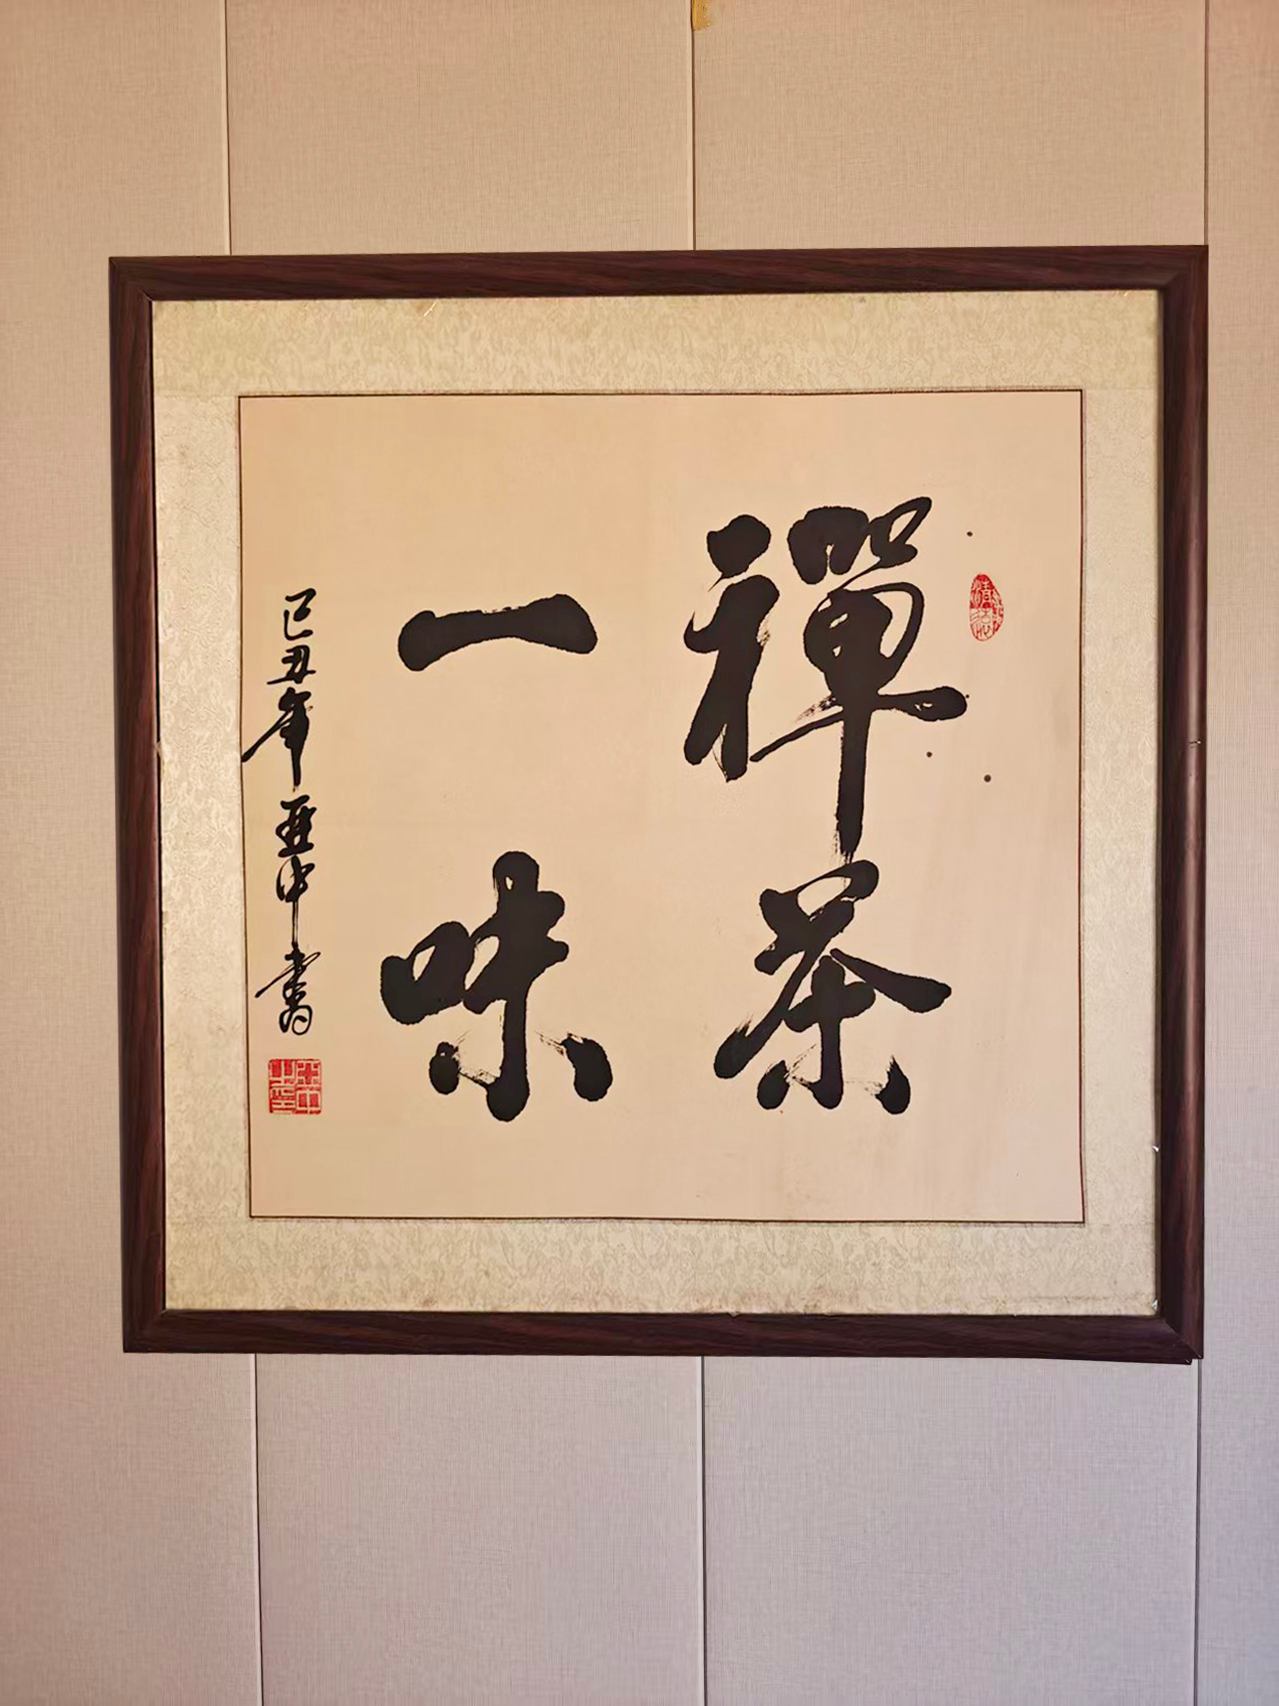 禪茶
一味
己丑年亚中書